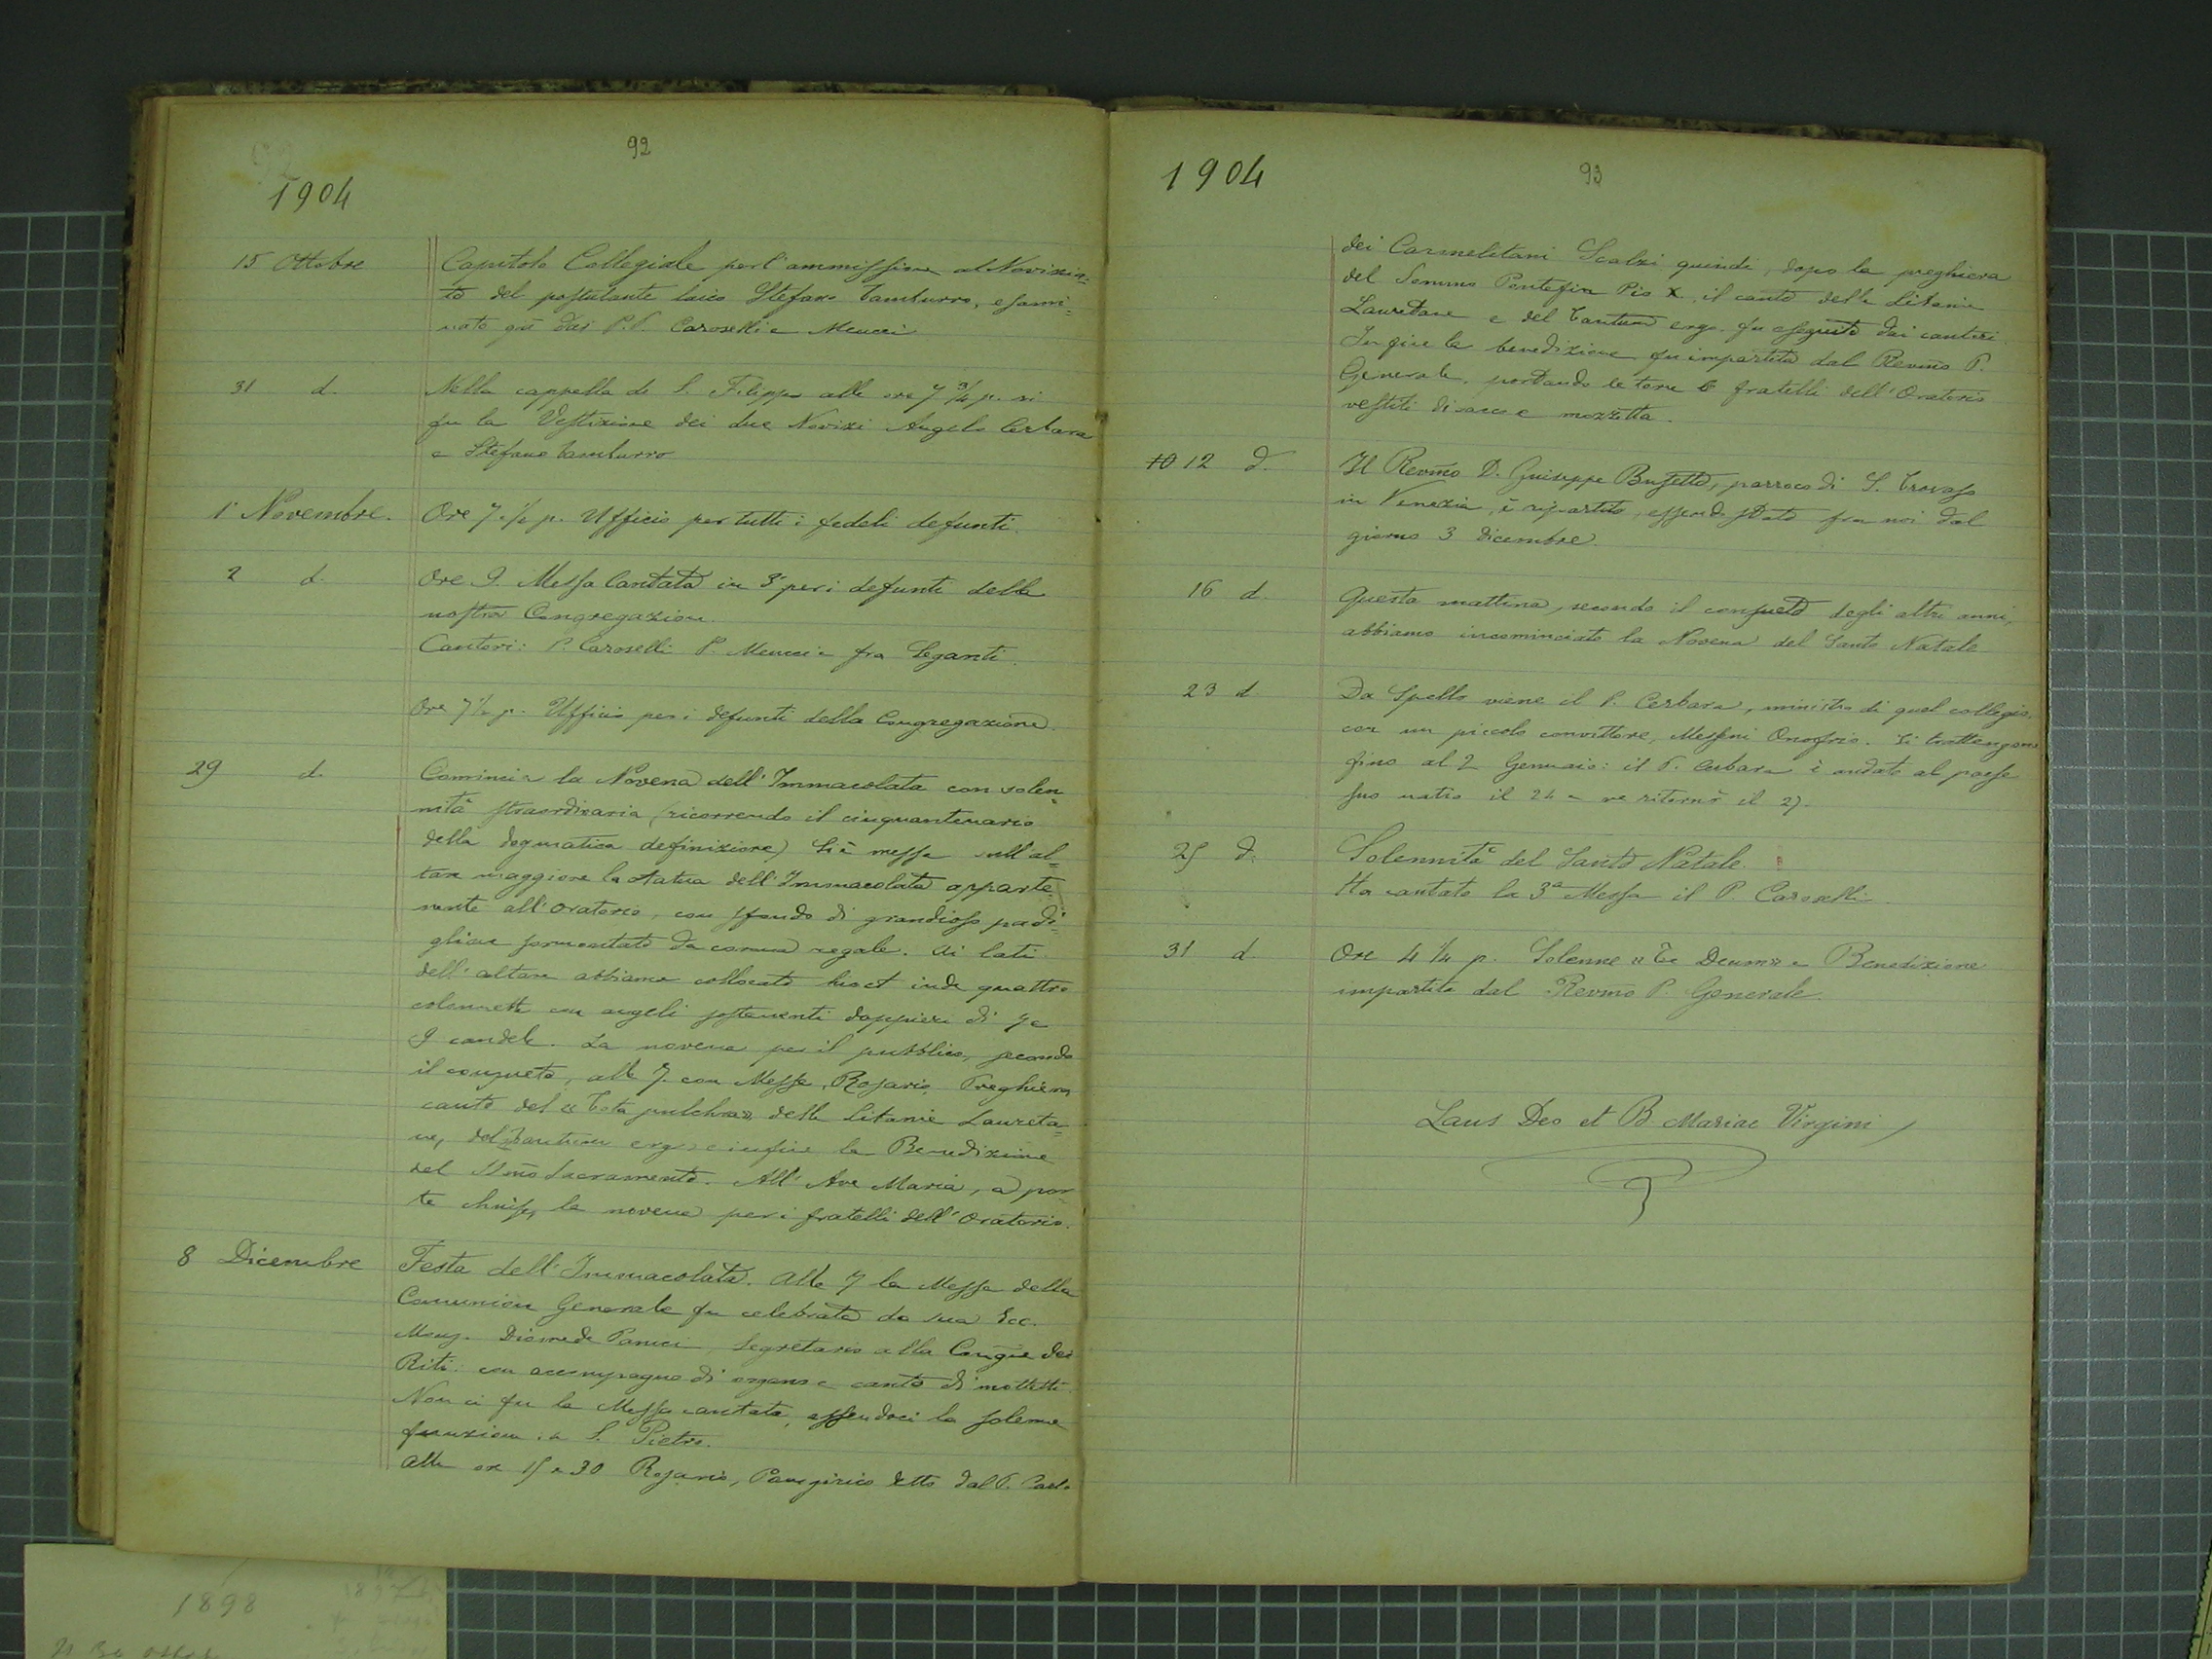 92
1904
15 Ottobre Capitolo Collegiale per l'ammissione al Novizia=
to del postulante laico Stefano Tamburro, esami=
nato già dai P.P. Caroselli e Meucci
31 d. Nella cappella di S. Filippo alle ore 7 3/4 p. si
fu la Vestizione dei due Novizi Angelo Cerbara
e Stefano Tamburro
1° Novembre. Ore 7 1/2 p. Ufficio per tutti i fedeli defunti.
2 d. Ore 9. Messa Cantata in 3° per i defunti della
nostra Congregazione.
Cantori: P. Caroselli P. Meucci e fra Leganti.
Ore 7 1/2 p. Ufficio per i defunti della Congregazione.
29 d. Comincia la Novena dell'Immacolata con solen=
nità straordinaria (ricorrendo il cinquantenario
della dogmatica definizione) Si è messa sull'al=
tare maggiore la statua dell'Immacolata apparte=
nente all'Oratorio, con sfondo di grandioso padi=
glione sormontato da corona regale. Ai lati
dell'altare abbiamo collocato hic et inde quattro
colonnette con angeli sostenenti doppieri di 7 e
9 candele. La novena per il pubblico, secondo
il consueto, alle 7. con Messe, Rosario, Preghiera
canto del "Tota pulchra" delle Litanie Laureta=
ne, del Tantum ergo e infine la Benedizione
del SSmo Sacramento. All'Ave Maria, a por=
te chiuse, la novena per i fratelli dell'Oratorio.
8 Dicembre Festa dell'Immacolata. Alle 7 la Messa della
Comunione Generale fu celebrata da sua Ecc.
Mons. Diomede Panici, Segretario alla Congne dei
Riti: con accompagno di organo e canto di mottetti.
Non ci fu la Messa cantata, essendoci la solenne
funzione a S. Pietro.
Alle ore 15 e 30 Rosario, Panegirico detto dal P. Carlo
1904
93
dei Carmelitani Scalzi quindi, dopo la preghiera
del Sommo Pontefice Pio X, il canto delle Litanie
Lauretane e del Tantum ergo fu eseguito dai cantori.
In fine la benedizione fu impartita dal Revmo P.
Generale, portando le torce 6 fratelli dell'Oratorio
vestiti di sacco e mozzetta.
10 12 d. Il Revmo D. Giuseppe Busetto, parroco di S. Trovaso
in Venezia, è ripartito, essendo stato fra noi dal
giorno 3 dicembre.
16 d. Questa mattina, secondo il consueto degli altri anni,
abbiamo incominciato la Novena del Santo Natale
23 d Da Spello viene il P. Cerbara, ministro di quel collegio,
con un piccolo convittore, Messeni Onofrio. Si trattengono
fino al 2 Gennaio: il P. Cerbara è andato al paese
suo natio il 24 e ne ritornò il 27.
25 d. Solennità del Santo Natale.
Ha cantato la 3ª Messa il P. Caroselli.
31 d. Ore 4 1/4 p. Solenne "Te Deum" e Benedizione
impartita dal Revmo P. Generale.
Laus Deo et B. Mariae Virgini
1898